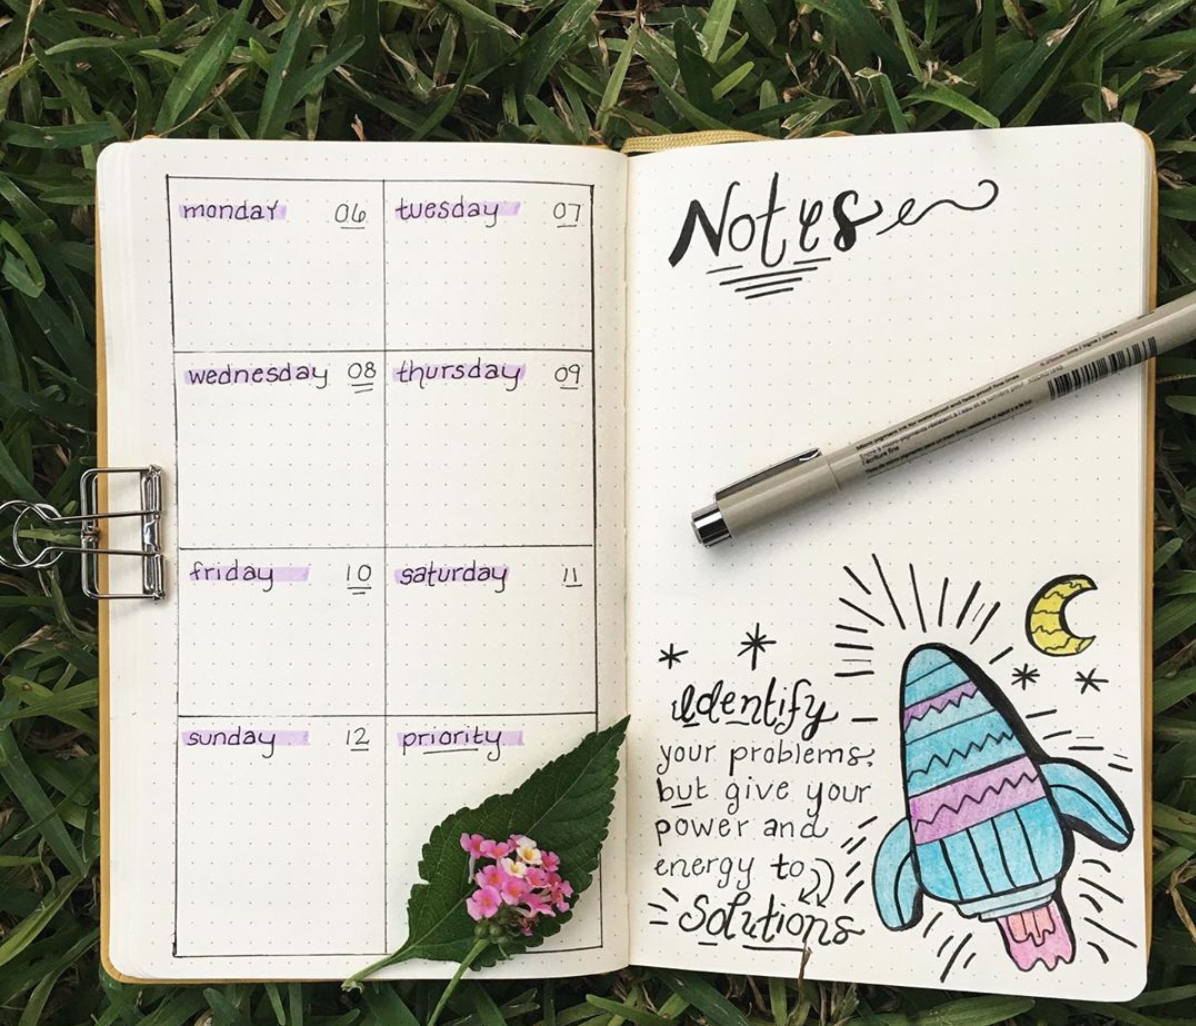 monday 06
tuesday 07
wednesday 08
thursday 09
friday 10
saturday 11
sunday 12
priority
Notes
Identify
your problems,
but give your
power and
energy to
Solutions